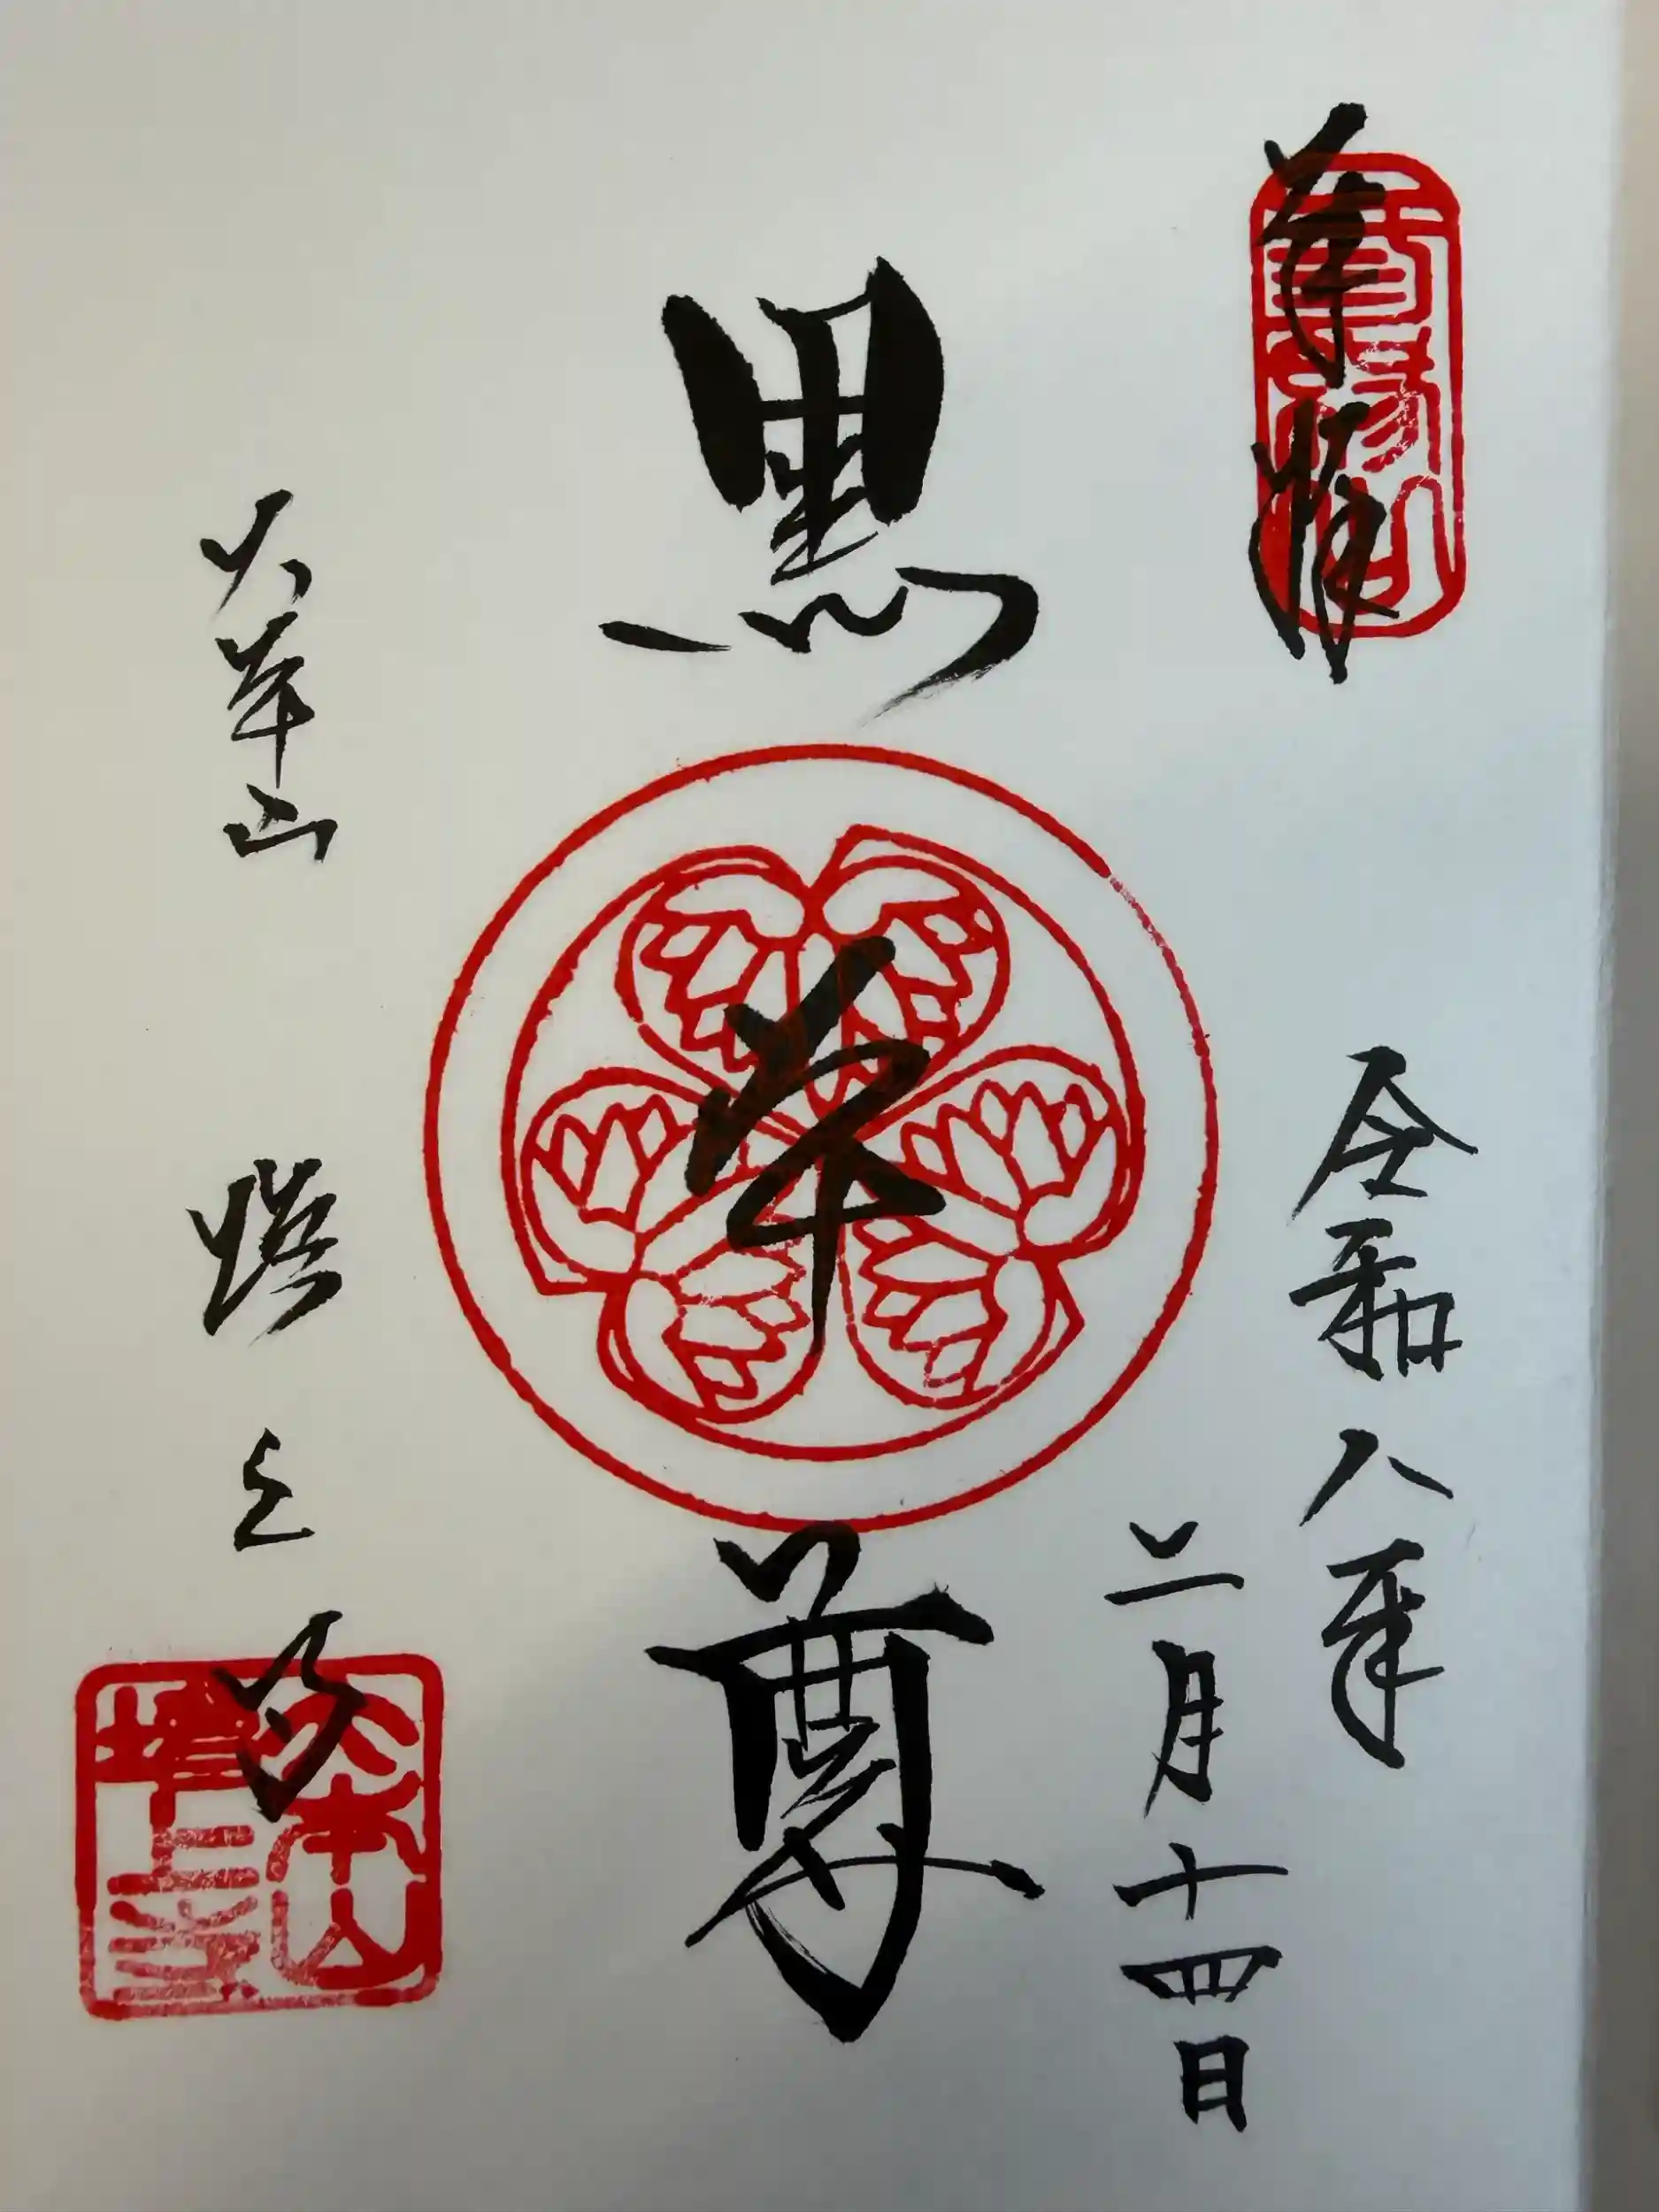 奉拝
令和八年
二月十四日
黒本尊
大本山 増上寺
大本山
増上寺